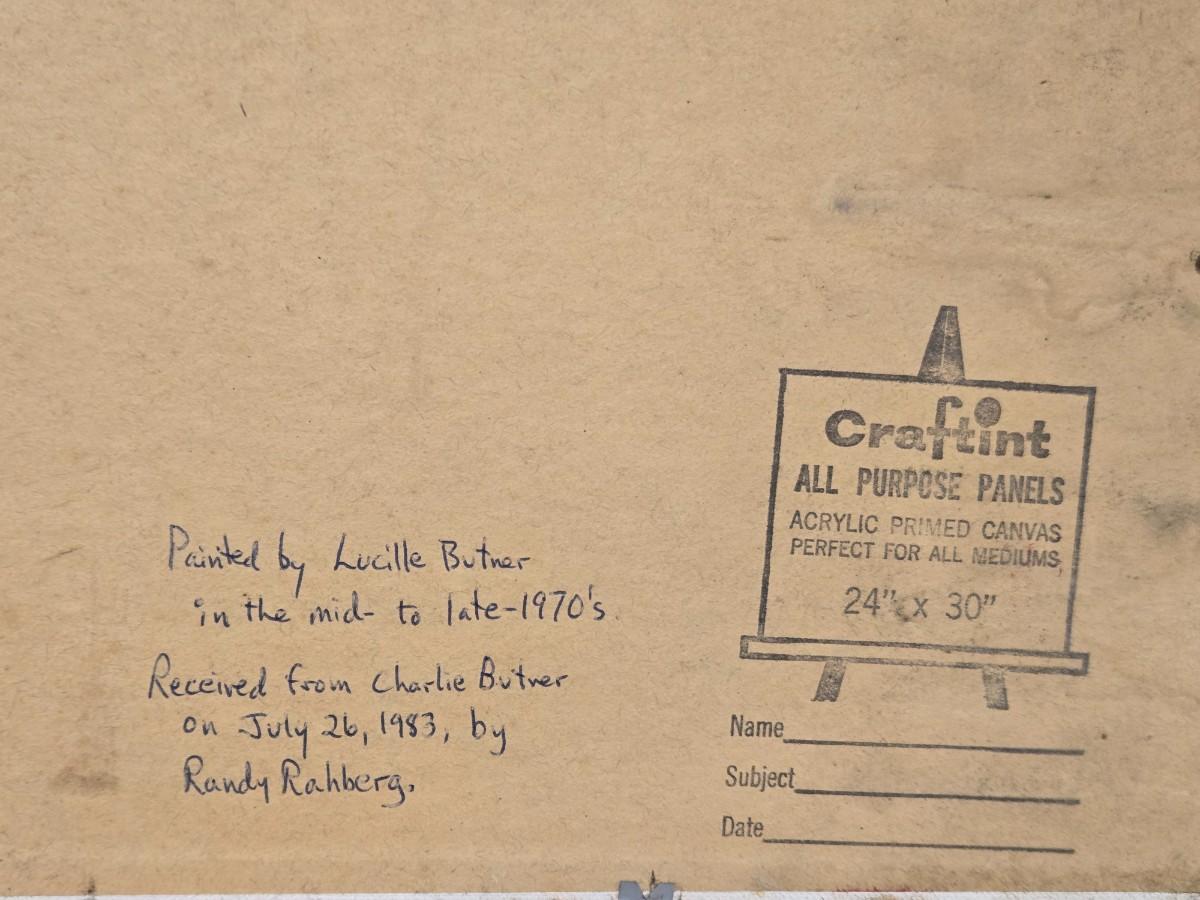 Painted by Lucille Butner
in the mid- to late-1970's
Received from Charlie Butner
on July 26, 1983, by
Randy Rahberg.
Craftint
ALL PURPOSE PANELS
ACRYLIC PRIMED CANVAS
PERFECT FOR ALL MEDIUMS
24" x 30"
Name
Subject
Date